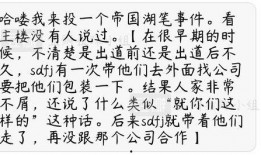 哈喽我来投一个帝国湖笔事件。看
主楼没有人说过。【在很早期的时
候，不清楚是出道前还是出道后不
久，sdfj有一次带他们去外面找公司
要把他们包装一下。结果人家非常
不屑，还说了什么类似“就你们这
样的”这种话。后来sdfj就带着他们
走了，再没跟那个公司合作】